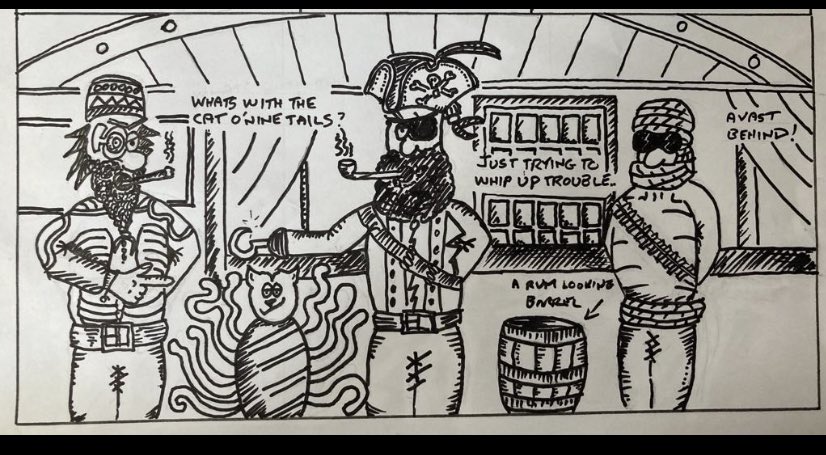 WHATS WITH THE
CAT O'NINE TAILS?
JUST TRYING TO
WHIP UP TROUBLE..
AVAST
BEHIND!
A RUM LOOKING
BARREL